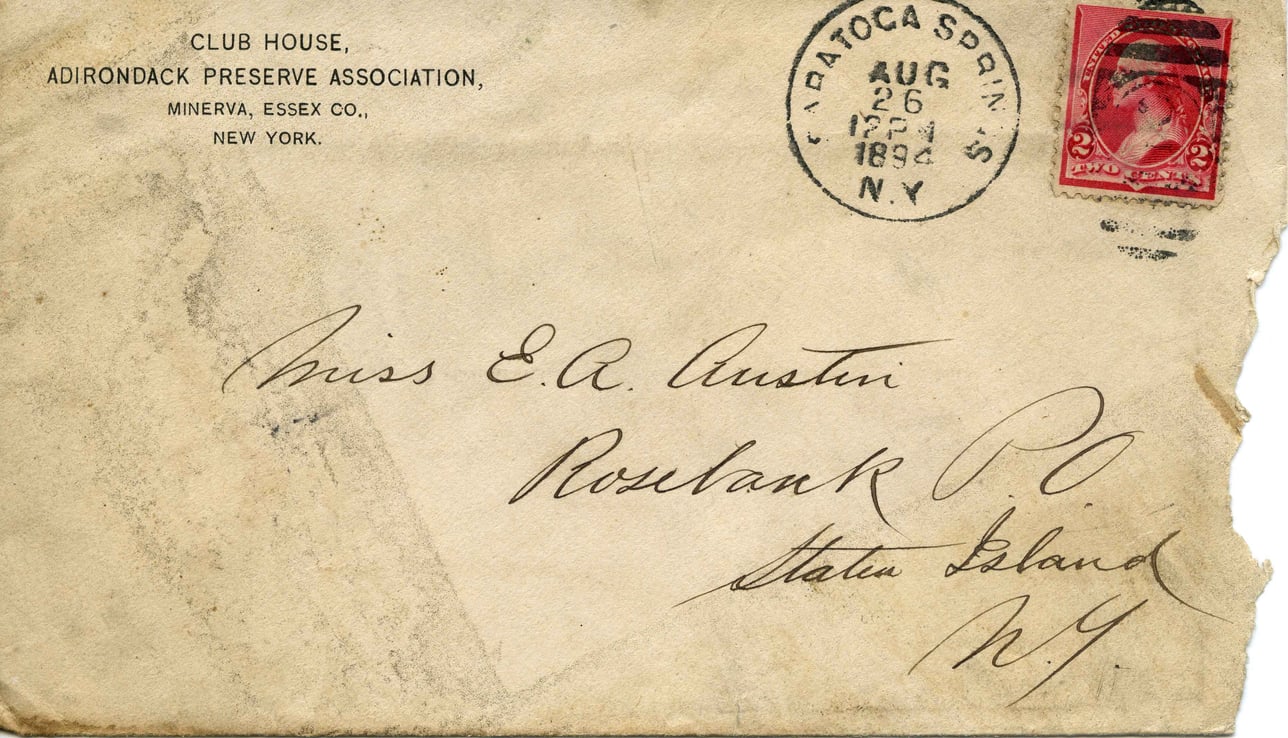 CLUB HOUSE,
ADIRONDACK PRESERVE ASSOCIATION,
MINERVA, ESSEX CO.,
NEW YORK.
SARATOGA SPRINGS
AUG
26
1894
N.Y
UNITED
2 2
TWO CENTS
Miss E. A. Austin
Rosebank P.O.
Staten Island
N.Y.